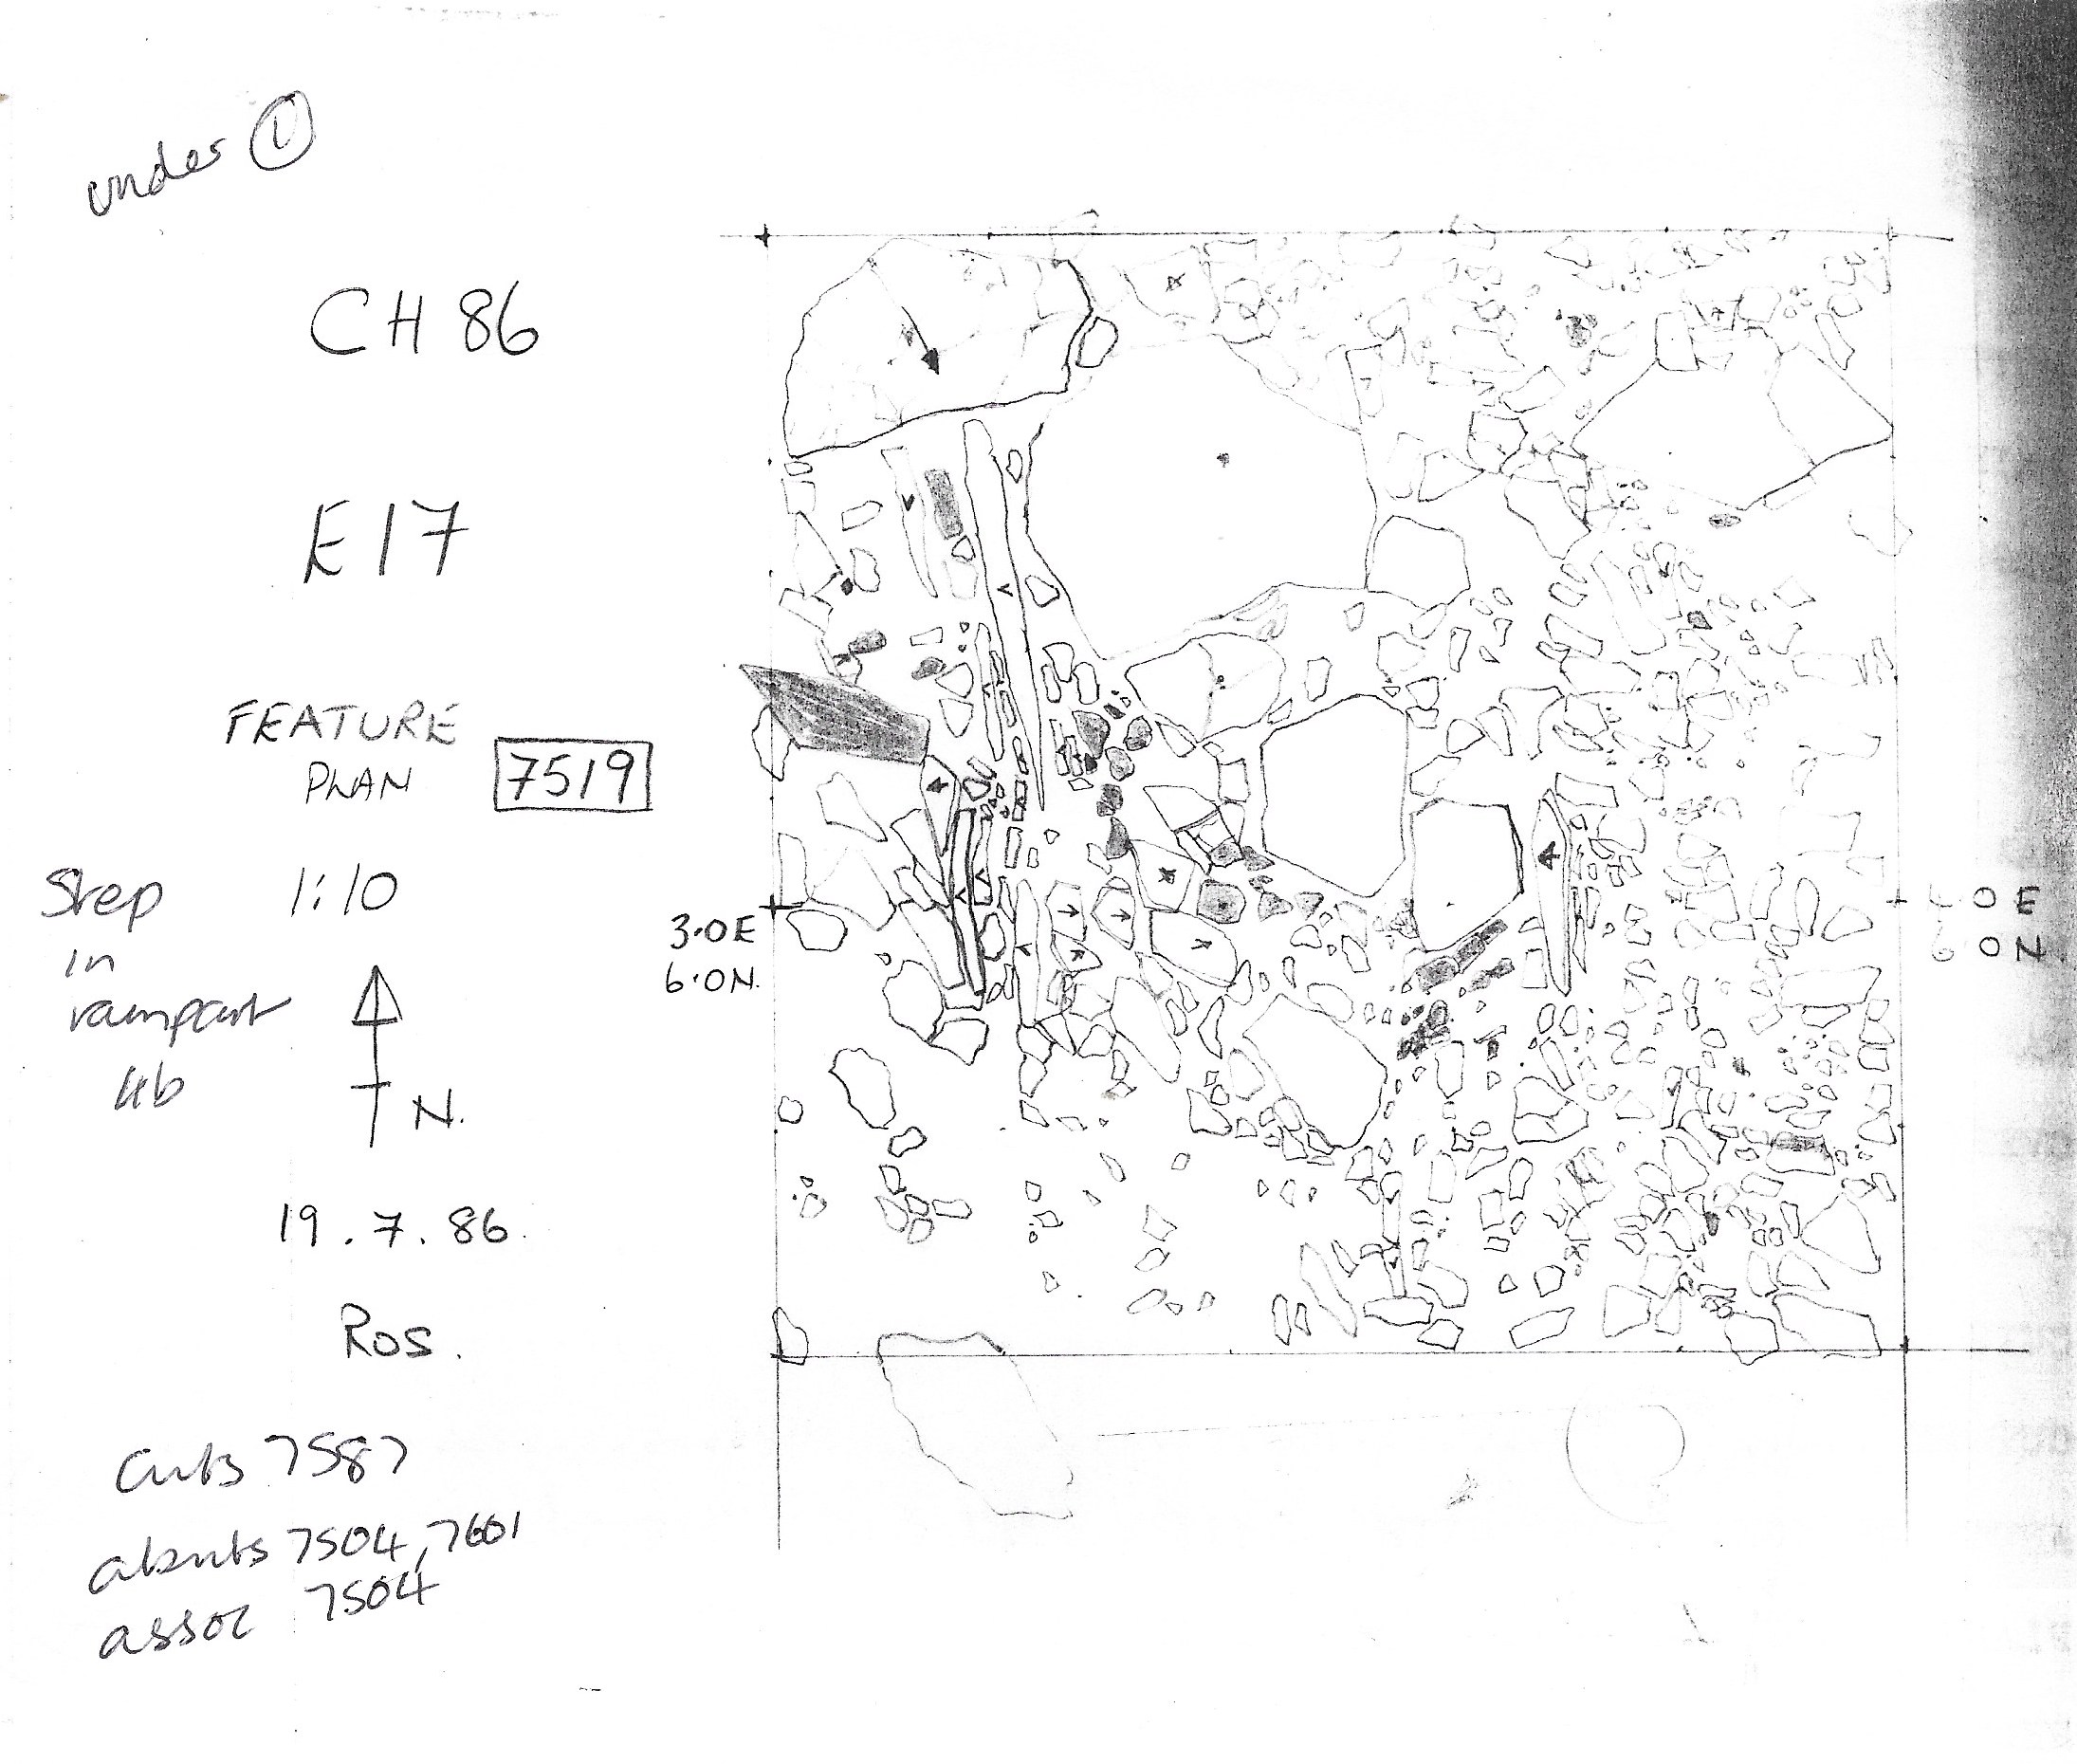 under ①
CH 86
E17
FEATURE
PLAN 7519
1:10
Step
in
rampart
N.
19.7.86.
Ros.
cuts 7587
abuts 7504, 7601
assoc 7504
3.0E
6.0N.
4.0E
6.0N